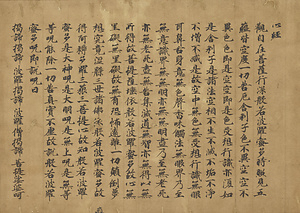 心經
觀自在菩薩行深般若波羅蜜多時照見五
蘊皆空度一切苦厄舍利子色不異空空不
異色色即是空空即是色受想行識亦復如
是舍利子是諸法空相不生不滅不垢不淨
不增不減是故空中無色無受想行識無眼
耳鼻舌身意無色聲香味觸法無眼界乃至
無意識界無無明亦無無明盡乃至無老死
亦無老死盡無苦集滅道無智亦無得以無
所得故菩提薩埵依般若波羅蜜多故心無
罣礙無罣礙故無有恐怖遠離一切顛倒夢
想究竟涅槃三世諸佛依般若波羅蜜多故
得阿耨多羅三藐三菩提故知般若波羅
蜜多是大神呪是大明呪是無上呪是無等
等呪能除一切苦真實不虛故說般若波羅
蜜多呪即說呪曰
揭諦揭諦 波羅揭諦 波羅僧揭諦 菩提薩婆訶